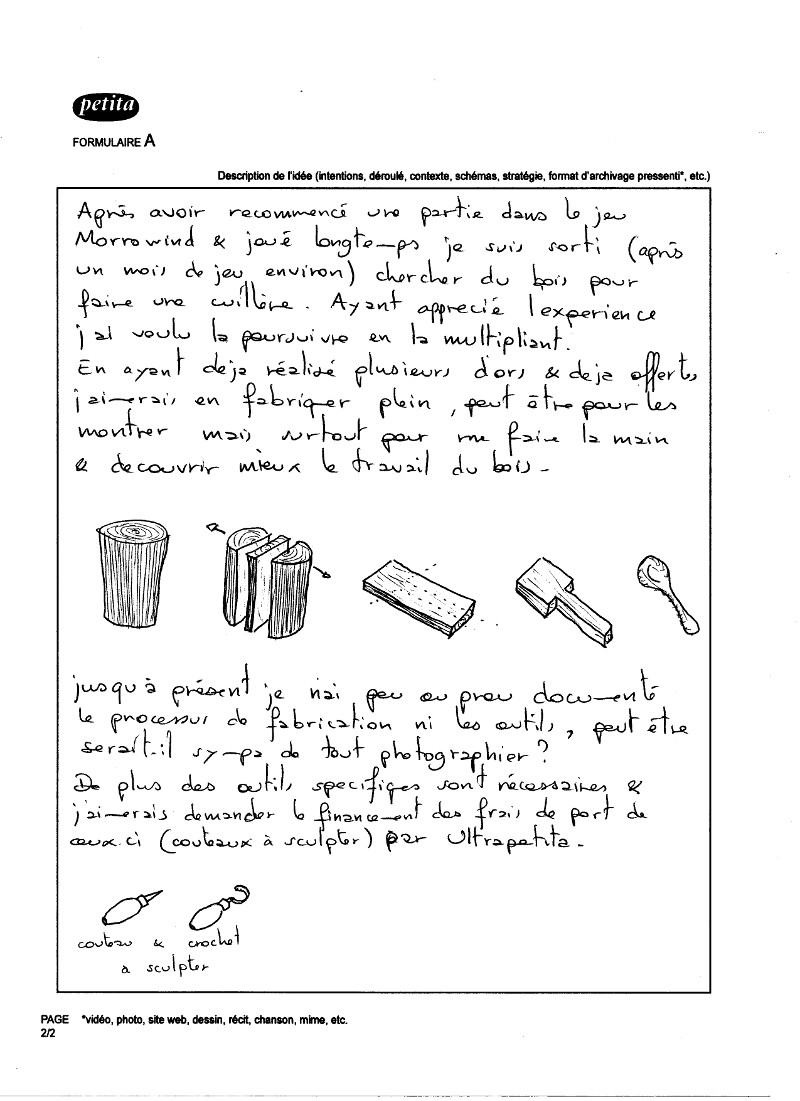 petita
FORMULAIRE A
Description de l'idée (intentions, déroulé, contexte, schémas, stratégie, format d'archivage pressenti*, etc.)
Après avoir recommencé une partie dans le jeu
Morrowind & joué longtemps je suis sorti (après
un mois de jeu environ) chercher du bois pour
faire une cuillère. Ayant apprecié l'experience
j'ai voulu la poursuivre en la multipliant.
En ayant deja réalisé plusieurs d'ors & deja offerts
j'aimerais en fabriquer plein, peut être pour les
montrer mais surtout pour me faire la main
& decouvrir mieux le travail du bois -
jusqu'à présent je n'ai peu ou prou documenté
le processus de fabrication ni les outils, peut être
serait-il sympa de tout photographier?
De plus des outils specifiques sont nécessaires &
j'aimerais demander le financement des frais de port de
ceux.ci (couteaux à sculpter) par Ultrapetita.
couteau & crochet
a sculpter
PAGE *vidéo, photo, site web, dessin, récit, chanson, mime, etc.
2/2